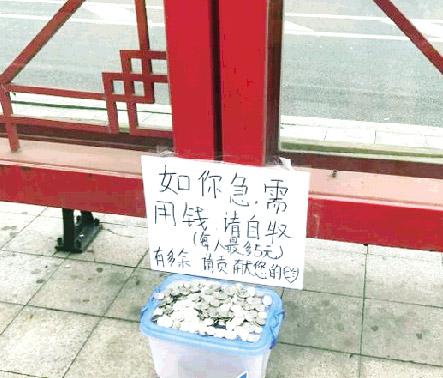 如你急.需
用钱.请自收
(每人最多5元)
有多余 请贡献您的